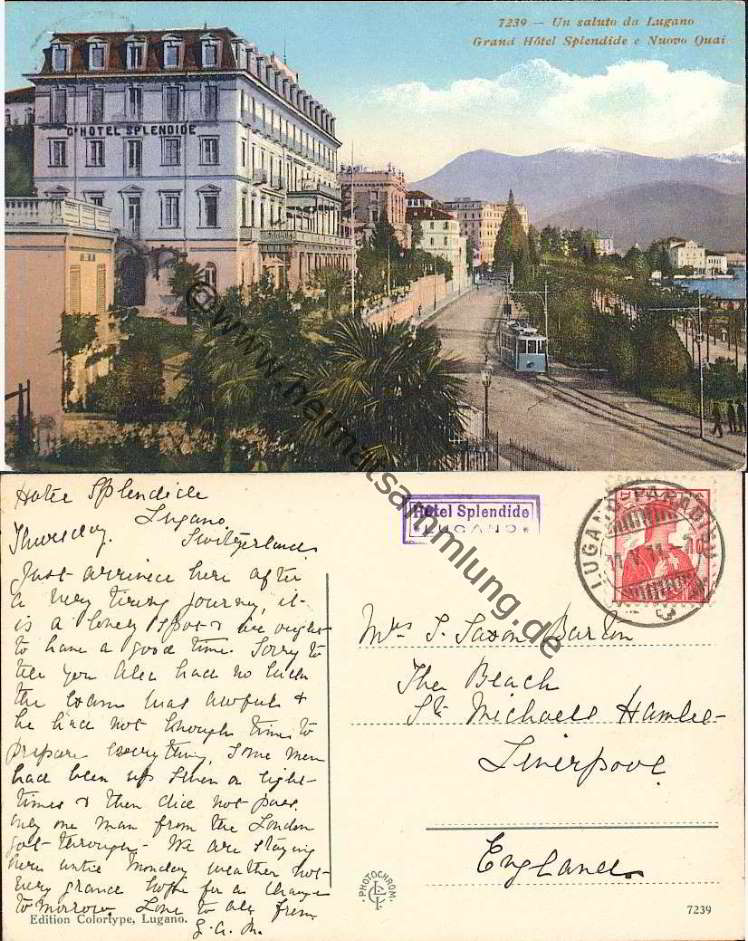 7239 – Un saluto da Lugano
Grand Hôtel Splendide e Nuovo Quai
Gd HOTEL SPLENDIDE
©www.heimatsammlung.de
Hotel Splendide
Lugano
Thursday. Switzerland
Just arrived here after
a very tiring journey, it
is a lovely spot & we ought
to have a good time. Sorry to
tell you Alec had no luck
the Exam was awful &
he had not enough time to
prepare everything, Some men
had been up seven or eight
times & then did not pass.
only one man from the London
got through. We are staying
here until Monday weather not
very grand hope for a change
tomorrow. Love to all from
Edition Colortype, Lugano.
Hôtel Splendide
LUGANO
LUGANO-PARADISO
Mrs S. Saxon Barton
The Beach
St. Michaels Hamlet
Liverpool
England
PHOTOCHROM
7239